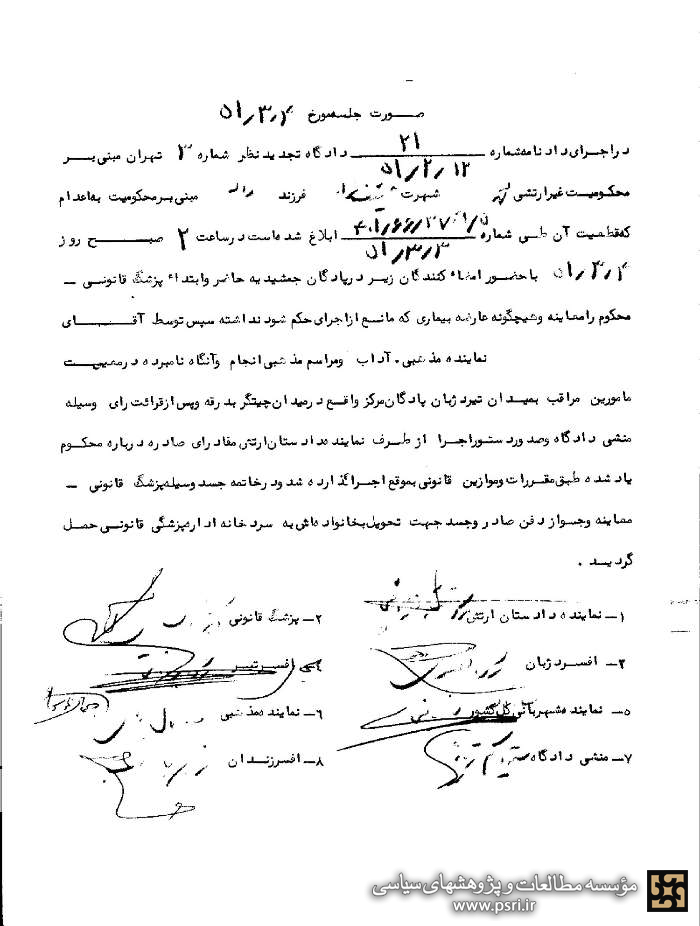 صورت جلسه مورخ ۵۱/۳/۴
در اجرای دادنامه شماره ۲۱ دادگاه تجدید نظر شماره ۳ تهران مبنی بر
۵۱/۲/۱۲
محکومیت غیرارتشی شهرت فرزند مبنی بر محکومیت به اعدام
که قطعیت آن طی شماره ابلاغ شده است در ساعت ۲ صبح روز
۵۱/۳/۳
۵۱/۳/۴ با حضور امضاء کنندگان زیر در پادگان جمشیدیه حاضر و ابتداء پزشگ قانونی –
محکوم را معاینه و هیچگونه عارضه بیماری که مانع از اجرای حکم شود نداشته سپس توسط آقای
نماینده مذهبی . آداب و مراسم مذهبی انجام و آنگاه نامبرده در معییت
مامورین مراقب بمیدان تیر دژبان پادگان مرکز واقع در میدان چیتگر بدرقه و پس از قرائت رای وسیله
منشی دادگاه و صدور دستور اجرا از طرف نماینده دادستان ارتش مفاد رای صادره درباره محکوم
یاد شده طبق مقررات و موازین قانونی بموقع اجرا گذارده شد و در خاتمه جسد وسیله پزشگ قانونی –
معاینه و جواز دفن صادر و جسد جهت تحویل بخانواده اش به سردخانه اداره پزشگی قانونی حمل
گردید .
۱– نماینده دادستان ارتش ۲– پزشگ قانونی
۳– افسر دژبان ۴– افسر تیر
۵– نماینده شهربانی کل کشور ۶– نماینده مذهبی
۷– منشی دادگاه ۸– افسر زندان
مؤسسه مطالعات و پژوهشهای سیاسی
www.psri.ir